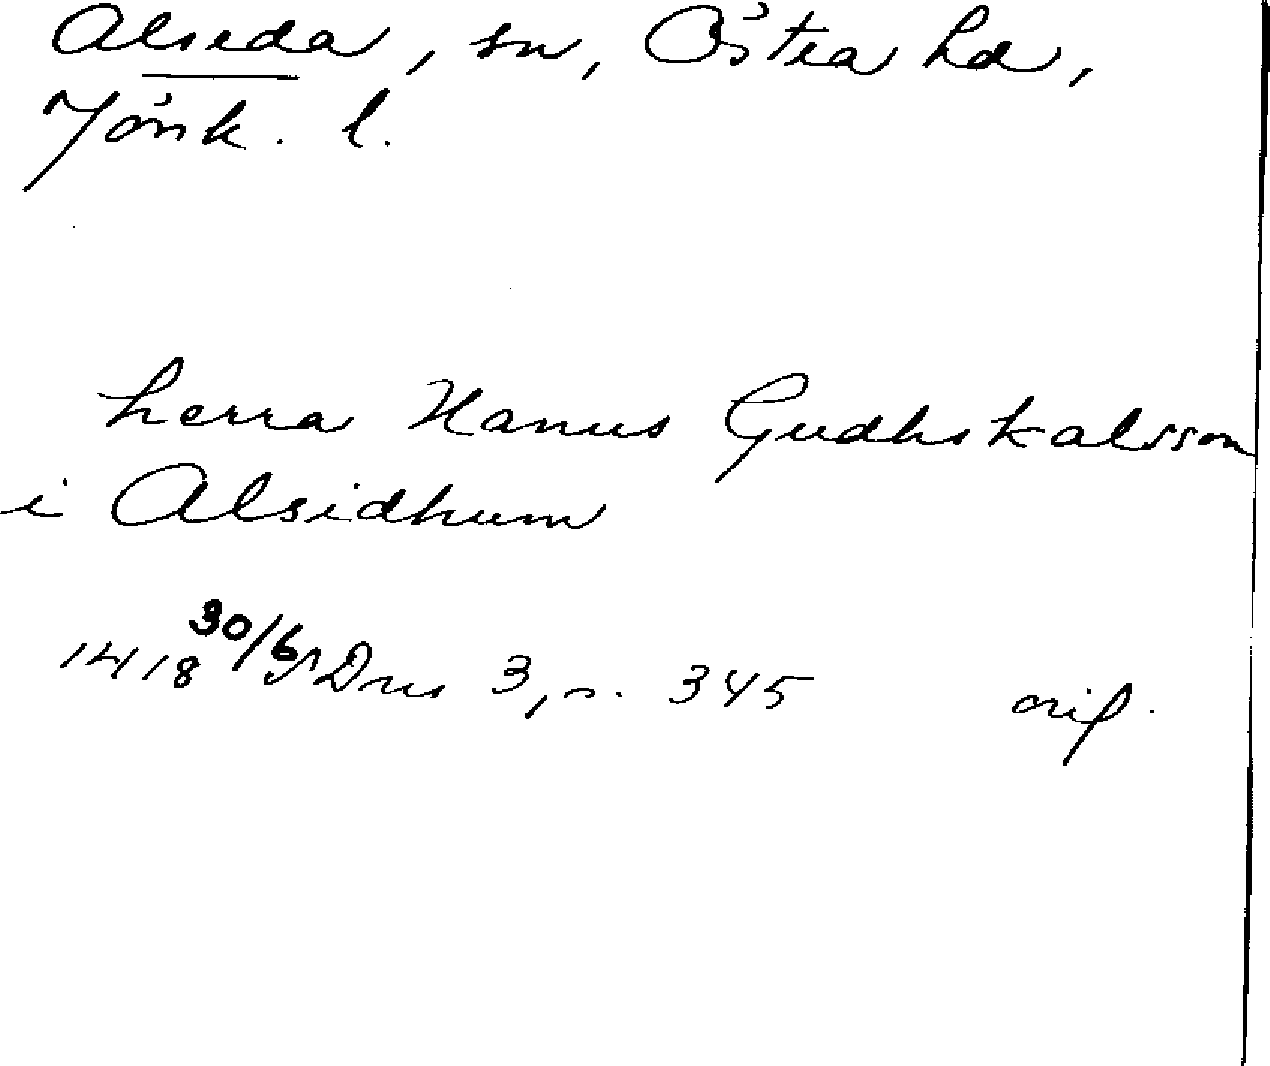 Alseda, sn, Östra hd,
Jönk. l.
herra Hanus Gudhskalsson
i Alsidhum
1418 30/6 SDns 3, s. 345 orig.